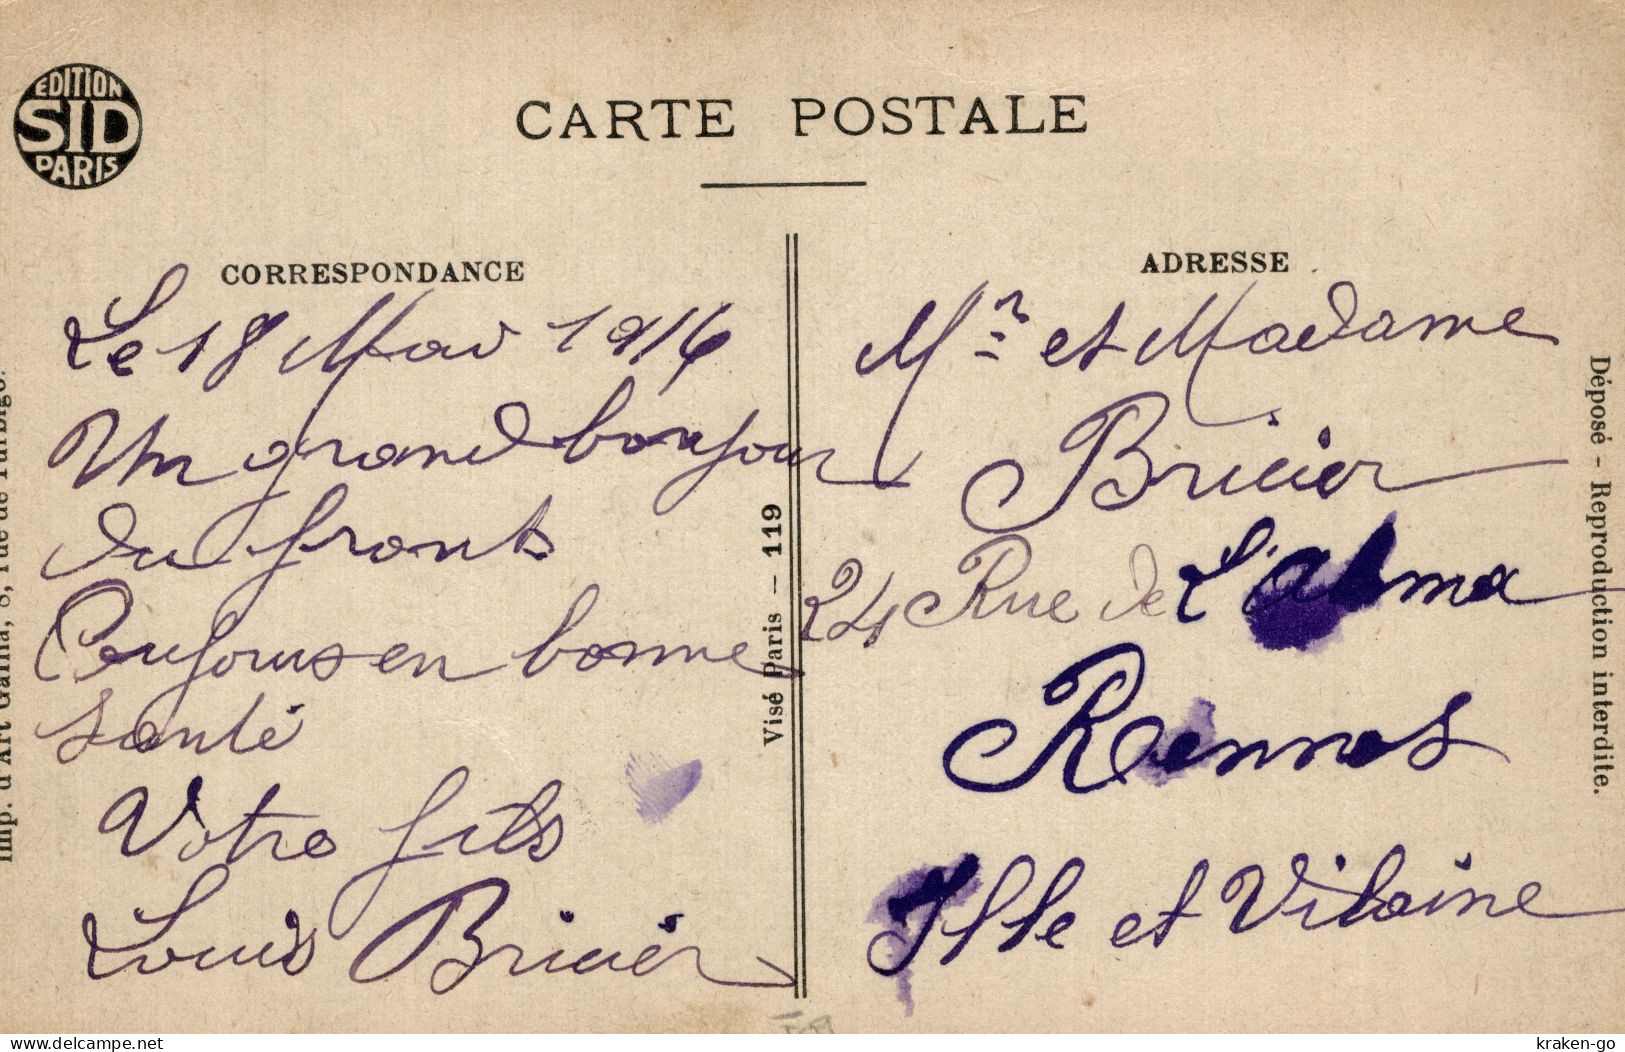 EDITION
SID
PARIS
CARTE POSTALE
CORRESPONDANCE
Le 18 Mai 1916
Un grand bonjour
du front
Toujours en bonne
santé
Votre fils
Louis Bricier
ADRESSE
Mr et Madame
Bricier
24 Rue de L'alma
Rennes
Ille et Vilaine
Visé Paris - 119
Déposé - Reproduction interdite.
Imp. d'Art 8, rue de Turbigo.
https://www.delcampe.net
kraken-go